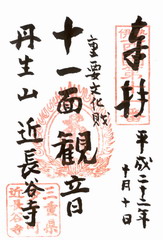 奉拝
平成二十二年
十月十日
重要文化財
十一面観音
丹生山 近長谷寺
三重県
近長谷寺